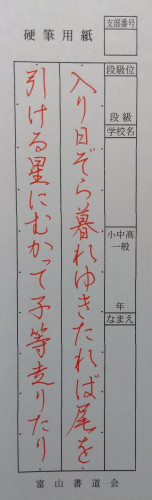 硬筆用紙
支部番号
段級位
段級
学校名
小中高
一般
年
なまえ
入り日ぞら暮れゆきたれば尾を
引ける星にむかって子等走りたり
富山書道会